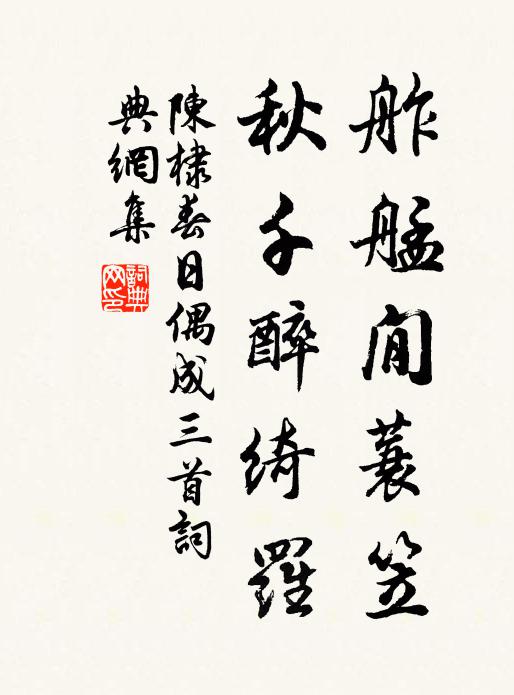 舴艋閒蓑笠
秋千醉綺羅
陳棣春日偶成三首詞
典網集
詞典網印